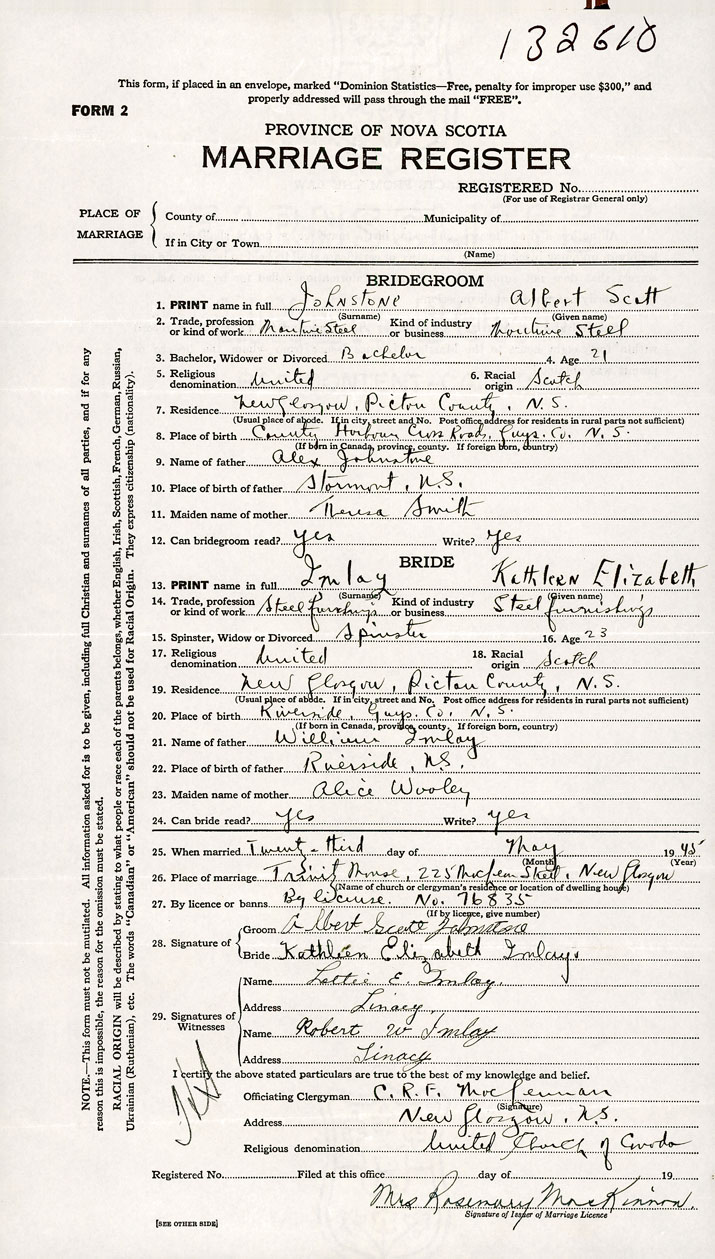 132610
This form, if placed in an envelope, marked "Dominion Statistics—Free, penalty for improper use $300," and
properly addressed will pass through the mail "FREE".
FORM 2
PROVINCE OF NOVA SCOTIA
MARRIAGE REGISTER
REGISTERED No.
(For use of Registrar General only)
PLACE OF MARRIAGE
County of Municipality of
If in City or Town
(Name)
BRIDEGROOM
1. PRINT name in full Johnstone Albert Scott
(Surname) (Given name)
2. Trade, profession or kind of work Maritime Steel Kind of industry or business Maritime Steel
3. Bachelor, Widower or Divorced Bachelor 4. Age 21
5. Religious denomination United 6. Racial origin Scotch
7. Residence New Glasgow, Pictou County, N.S.
(Usual place of abode. If in city, street and No. Post office address for residents in rural parts not sufficient)
8. Place of birth County Harbour Cross Roads, Guys. Co. N.S.
(If born in Canada, province, county. If foreign born, country)
9. Name of father Alex Johnstone
10. Place of birth of father Stormont, N.S.
11. Maiden name of mother Theresa Smith
12. Can bridegroom read? Yes Write? Yes
BRIDE
13. PRINT name in full Imlay Kathleen Elizabeth
(Surname) (Given name)
14. Trade, profession or kind of work Steel furnishings Kind of industry or business Steel furnishings
15. Spinster, Widow or Divorced Spinster 16. Age 23
17. Religious denomination United 18. Racial origin Scotch
19. Residence New Glasgow, Pictou County, N.S.
(Usual place of abode. If in city, street and No. Post office address for residents in rural parts not sufficient)
20. Place of birth Riverside, Guys. Co. N.S.
(If born in Canada, province, county. If foreign born, country)
21. Name of father William Imlay
22. Place of birth of father Riverside, N.S.
23. Maiden name of mother Alice Wooley
24. Can bride read? yes Write? yes
25. When married Twenty-third day of May 1945
(Month) (Year)
26. Place of marriage House, 225 MacLean Street, New Glasgow
(Name of church or clergyman's residence or location of dwelling house)
27. By licence or banns By license. No. 76835
(If by licence, give number)
28. Signature of
Groom Albert Scott Johnstone
Bride Kathleen Elizabeth Imlay
29. Signatures of Witnesses
Name Lettie E. Imlay
Address Linacy
Name Robert W Imlay
Address Linacy
I certify the above stated particulars are true to the best of my knowledge and belief.
Officiating Clergyman C. R. F. MacLennan
(Signature)
Address New Glasgow, N.S.
Religious denomination United Church of Canada
Registered No. Filed at this office day of 19
Mrs Rosemary MacKinnon.
Signature of Issuer of Marriage Licence
[SEE OTHER SIDE]
NOTE.—This form must not be mutilated. All information asked for is to be given, including full Christian and surnames of all parties, and if for any
reason this is impossible, the reason for the omission must be stated.
RACIAL ORIGIN will be described by stating to what people or race each of the parents belongs, whether English, Irish, Scottish, French, German, Russian,
Ukrainian (Ruthenian), etc. The words "Canadian" or "American" should not be used for Racial Origin. They express citizenship (nationality).